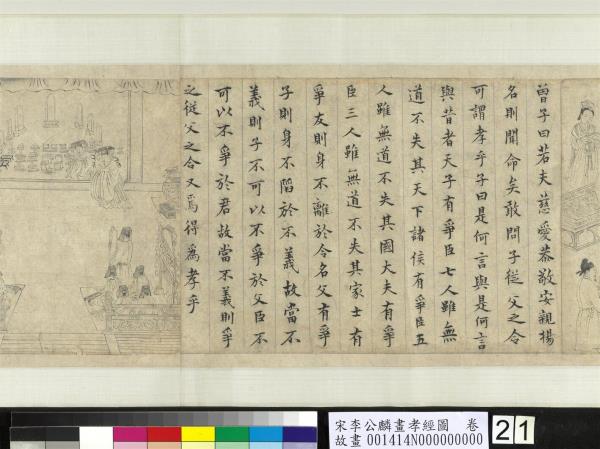 曾子曰若夫慈愛恭敬安親揚
名則聞命矣敢問子從父之令
可謂孝乎子曰是何言與是何言
與昔者天子有爭臣七人雖無
道不失其天下諸侯有爭臣五
人雖無道不失其國大夫有爭
臣三人雖無道不失其家士有
爭友則身不離於令名父有爭
子則身不陷於不義故當不
義則子不可以不爭於父臣不
可以不爭於君故當不義則爭
之從父之令又焉得為孝乎
宋李公麟畫孝經圖 卷
故畫 001414N000000000
21